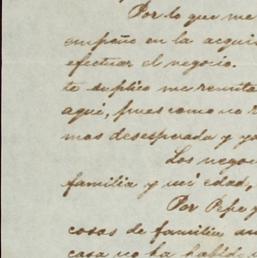 Por lo que me
empeño en la acqui
efectuar el negocio.
te suplico me remita
aqui, pues como no r
mas desesperada y yo
Los negoc
familia y mi edad,
Por Pepe y
cosas de familia an
casa no ha habido